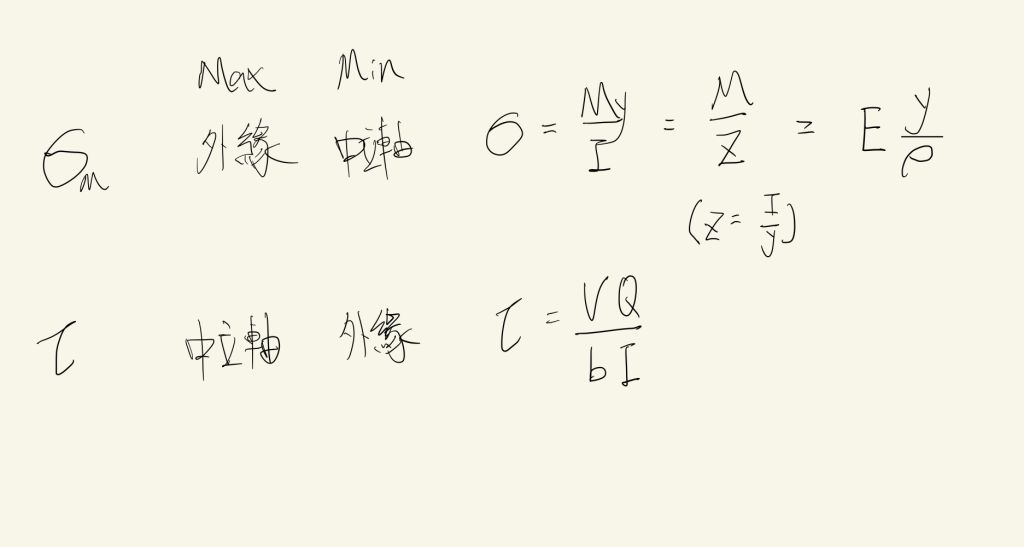 Max Min
σM 外緣 中立軸 σ = My/I = M/Z = E y/ρ
(Z = I/y)
τ 中立軸 外緣 τ = VQ/bI